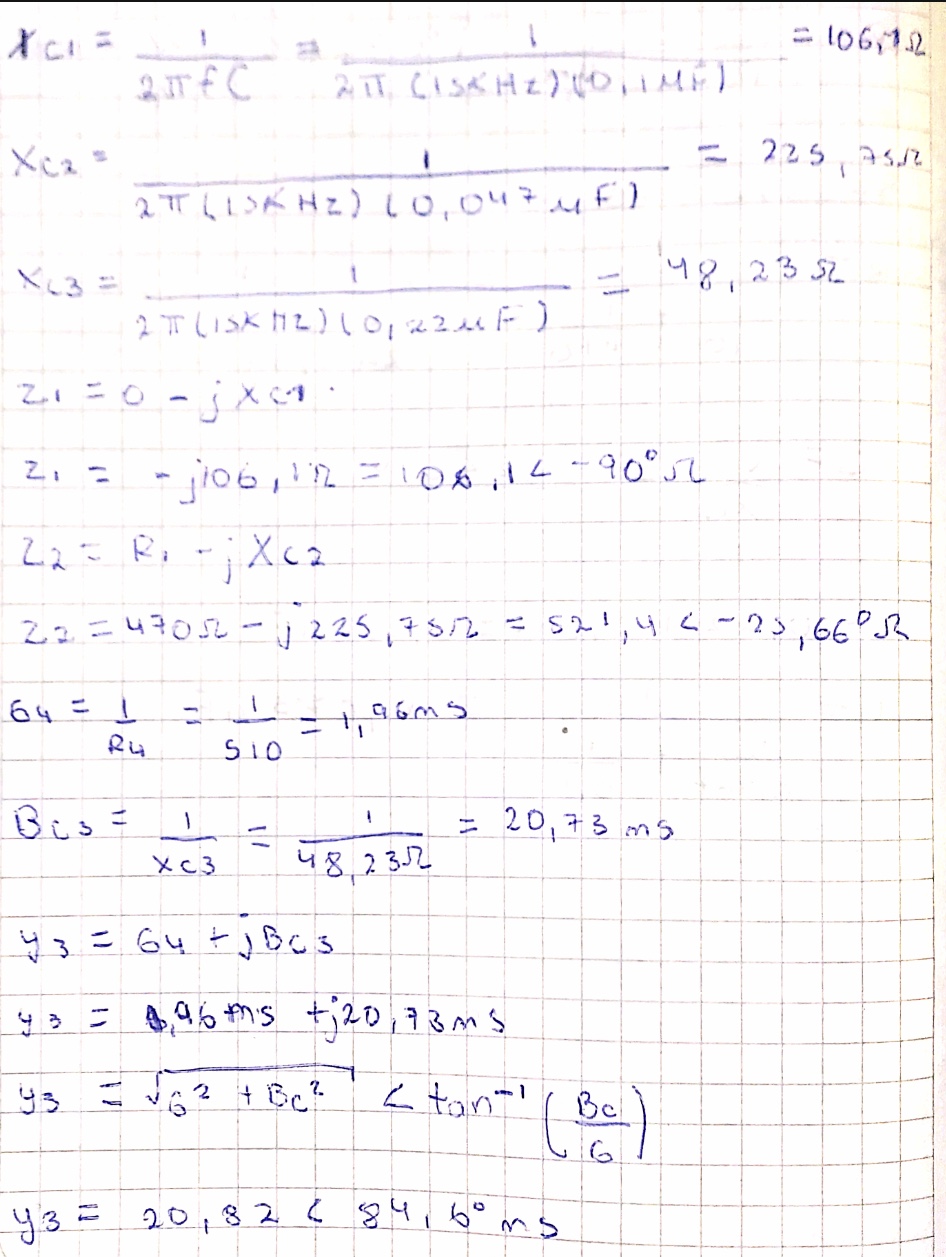 XC1 = 1/2πfC = 1/2π(15KHz)(0,1µF) = 106,1Ω
XC2 = 1/2π(15KHz)(0,047µF) = 225,75Ω
XC3 = 1/2π(15KHz)(0,22µF) = 48,23Ω
Z1 = 0 - jXC1
Z1 = -j106,1Ω = 106,1 < -90°Ω
Z2 = R1 - jXC2
Z2 = 470Ω - j225,75Ω = 521,4 < -25,66°Ω
G4 = 1/R4 = 1/510 = 1,96ms
BC3 = 1/XC3 = 1/48,23Ω = 20,73ms
y3 = G4 + jBC3
y3 = 1,96ms + j20,73ms
y3 = √G² + Bc² < tan⁻¹ (Bc/G)
y3 = 20,82 < 84,6° ms